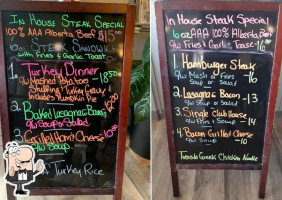 In House Steak Special
100% AAA Alberta Beef $15.00
6oz Steak Sandwich
with Fries & Garlic Toast
1. Turkey Dinner
w/ Mashed Potatoes 18.50
Stuffing Turkey Gravy
Includes Pumpkin Pie
2. Baked Lasagna Bacon
w/ Soup or Salad
3. Grilled Ham & Cheese
w/ Soup
Turkey Rice
In House Steak Special
6oz AAA 100% Alberta
w/ Fries & Garlic Toast -16
1. Hamburger Steak
w/ Mash or Fries -16
Soup or Salad
2. Lasagna & Bacon -13
w/ Soup or Salad
3. Single Clubhouse
w/ Fries & Soup -14
4. Bacon Grilled Cheese
w/ Soup -10
Greek Chicken Noodle